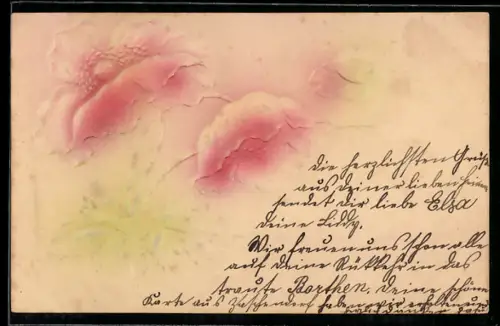 Die herzlichsten Grüße
aus deiner lieben
sendet dir liebe Elsa
deine Liddy.
Wir freuen uns schon alle
auf deine Rükkehr in das
traute Borthen. Deine schöne
Karte aus Zaschendorf haben wir erhalten und